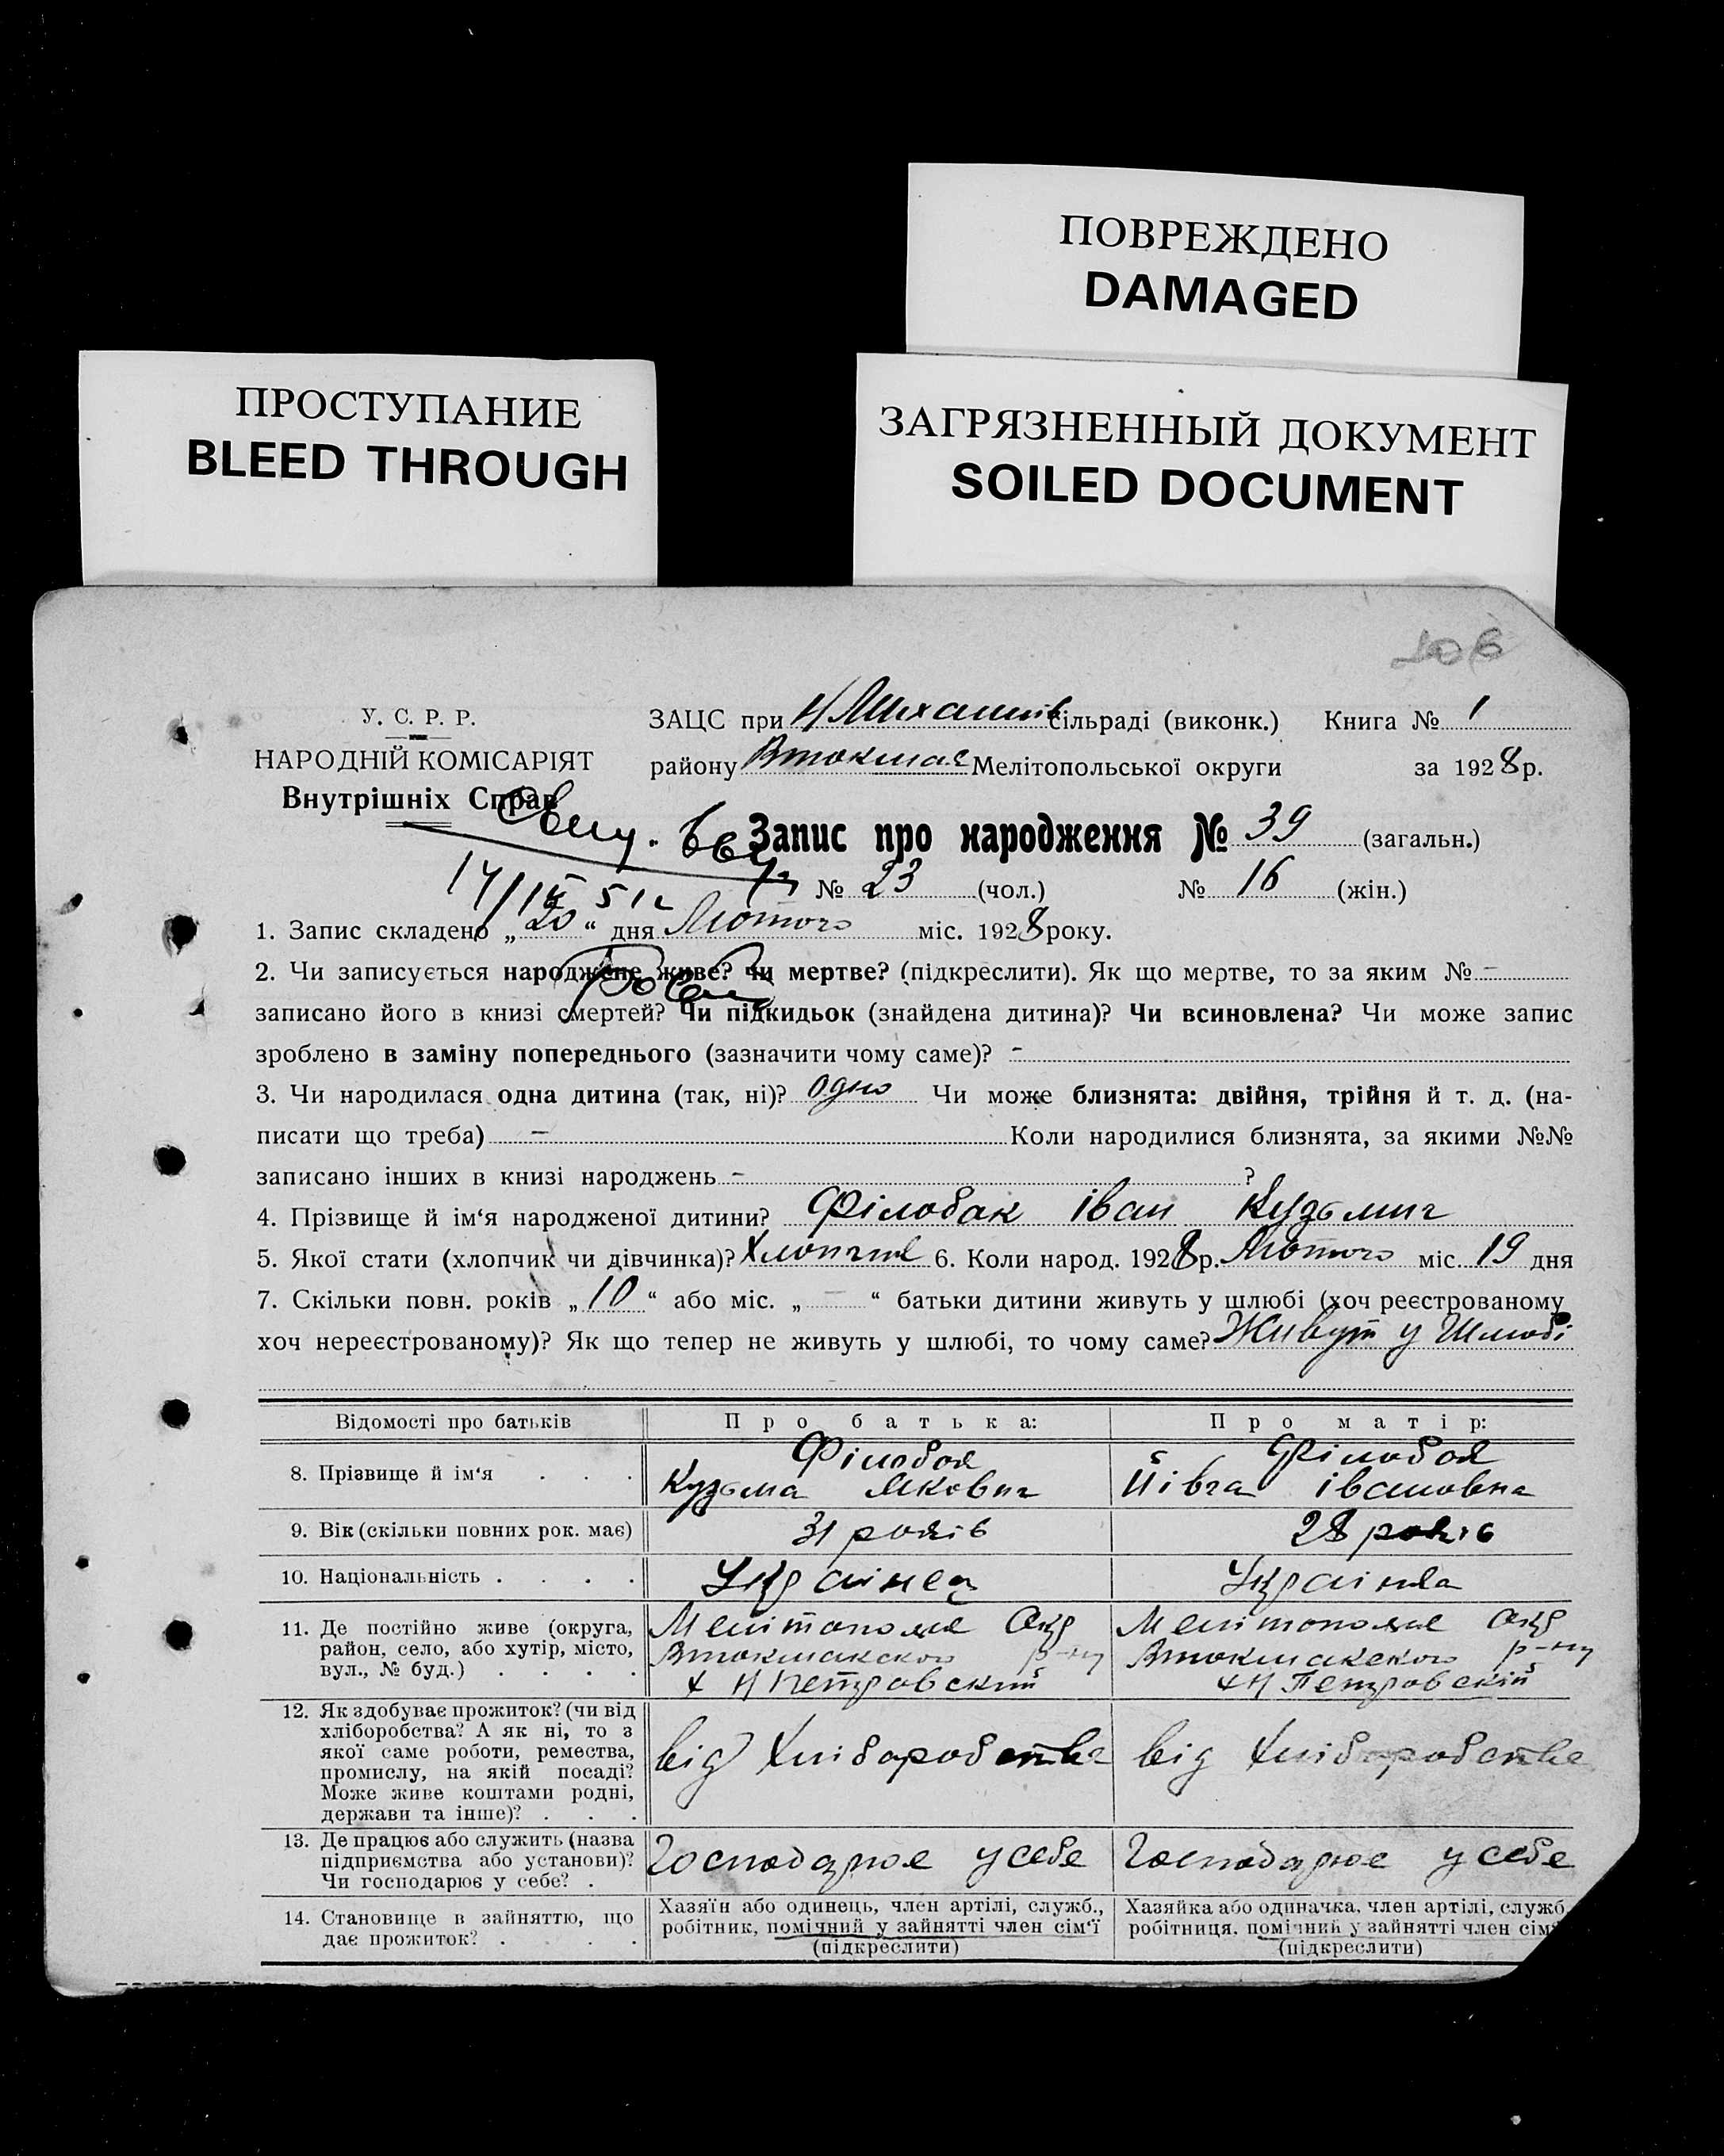 ПОВРЕЖДЕНО
DAMAGED
ПРОСТУПАНИЕ
BLEED THROUGH
ЗАГРЯЗНЕННЫЙ ДОКУМЕНТ
SOILED DOCUMENT
У. С. Р. Р.
НАРОДНІЙ КОМІСАРІЯТ
Внутрішніх Справ
ЗАЦС при Н Михайлів сільраді (виконк.) Книга № 1
району Втокмач Мелітопольської округи за 1928 р.
Запис про народження № 39 (загальн.)
№ 23 (чол.) № 16 (жін.)
1. Запис складено „20“ дня Лютого міс. 1928 року.
2. Чи записується народжене живе? чи мертве? (підкреслити). Як що мертве, то за яким № -
записано його в книзі смертей? Чи підкидьок (знайдена дитина)? Чи всиновлена? Чи може запис
зроблено в заміну попереднього (зазначити чому саме)? -
3. Чи народилася одна дитина (так, ні)? одно Чи може близнята: двійня, трійня й т. д. (на-
писати що треба) - Коли народилися близнята, за якими №№
записано інших в книзі народжень - ?
4. Прізвище й ім‘я народженої дитини? Філобак іван Кузьмич
5. Якої стати (хлопчик чи дівчинка)? Хлопчик 6. Коли народ. 1928 р. Лютого міс. 19 дня
7. Скільки повн. років „10“ або міс. „-“ батьки дитини живуть у шлюбі (хоч реєстрованому
хоч нереєстрованому)? Як що тепер не живуть у шлюбі, то чому саме? Живут у Шлюбі
Відомості про батьків Про батька: Про матір:
8. Прізвище й ім‘я . . .
Філобок
Кузьма Якович
Філобок
Йівга івановна
9. Вік (скільки повних рок. має) 31 років 28 років
10. Національність . . . . Українец Українка
11. Де постійно живе (округа,
район, село, або хутір, місто,
вул., № буд.) . . . .
Мелітополє Окр
Втокмакского р-ну
х Н Петровский
Мелітополє Окр
Втокмакского р-ну
х Н Петровский
12. Як здобуває прожиток? (чи від
хліборобства? А як ні, то з
якої саме роботи, ремества,
промислу, на якій посаді?
Може живе коштами родні,
держави та інше)? . . .
від Хліборобства
від Хліборобства
13. Де працює або служить (назва
підприємства або установи)?
Чи господарює у себе? .
Господарює у себе
Господарює у себе
14. Становище в зайняттю, що
дає прожиток? . . .
Хазяїн або одинець, член артілі, служб.,
робітник, помічний у зайнятті член сім‘ї
(підкреслити)
Хазяйка або одиначка, член артілі, служб.
робітниця, помічний у зайнятті член сім‘
(підкреслити)